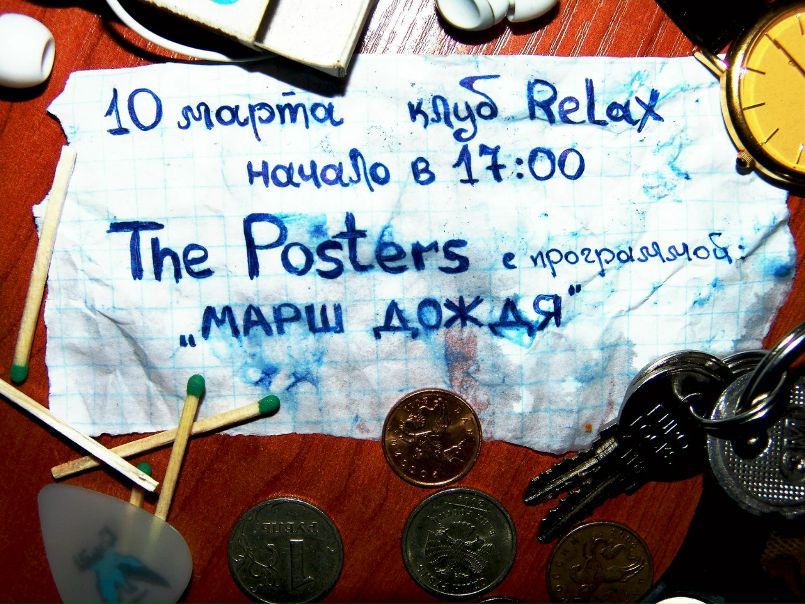 10 марта клуб ReLax
начало в 17:00
The Posters с программой:
„МАРШ ДОЖДЯ"
1
РУБЛЬ